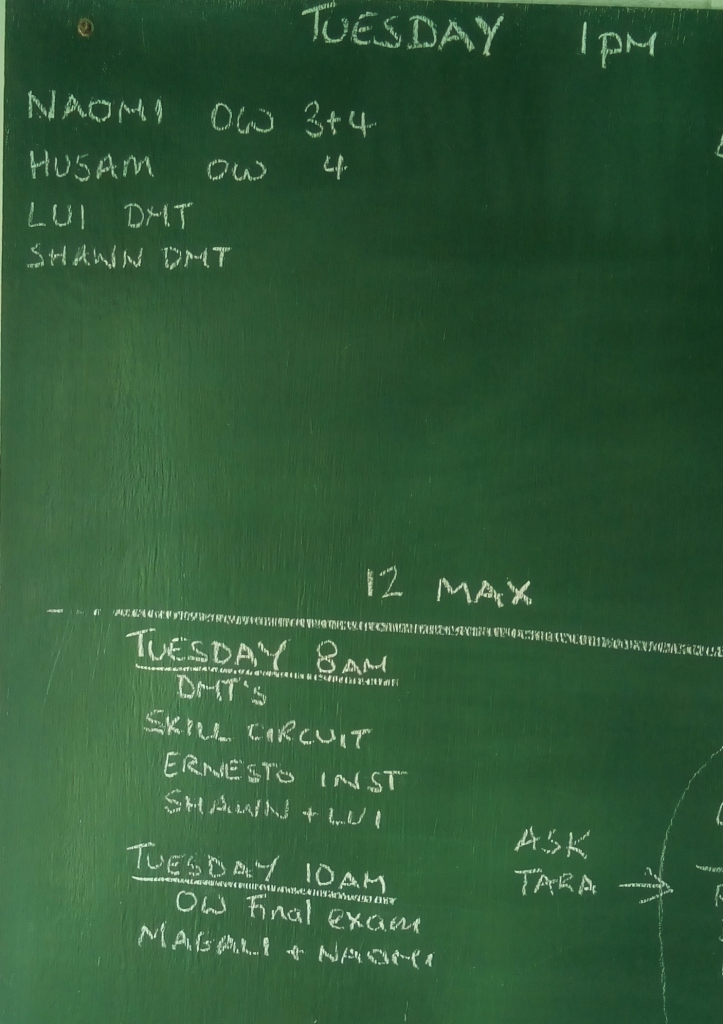 TUESDAY 1PM
NAOMI OW 3+4
HUSAM OW 4
LUI DMT
SHAWN DMT
12 MAX
TUESDAY 8AM
DMT's
SKILL CIRCUIT
ERNESTO INST
SHAWN + LUI
ASK
TARA →
TUESDAY 10AM
OW Final exam
MAGALI + NAOMI